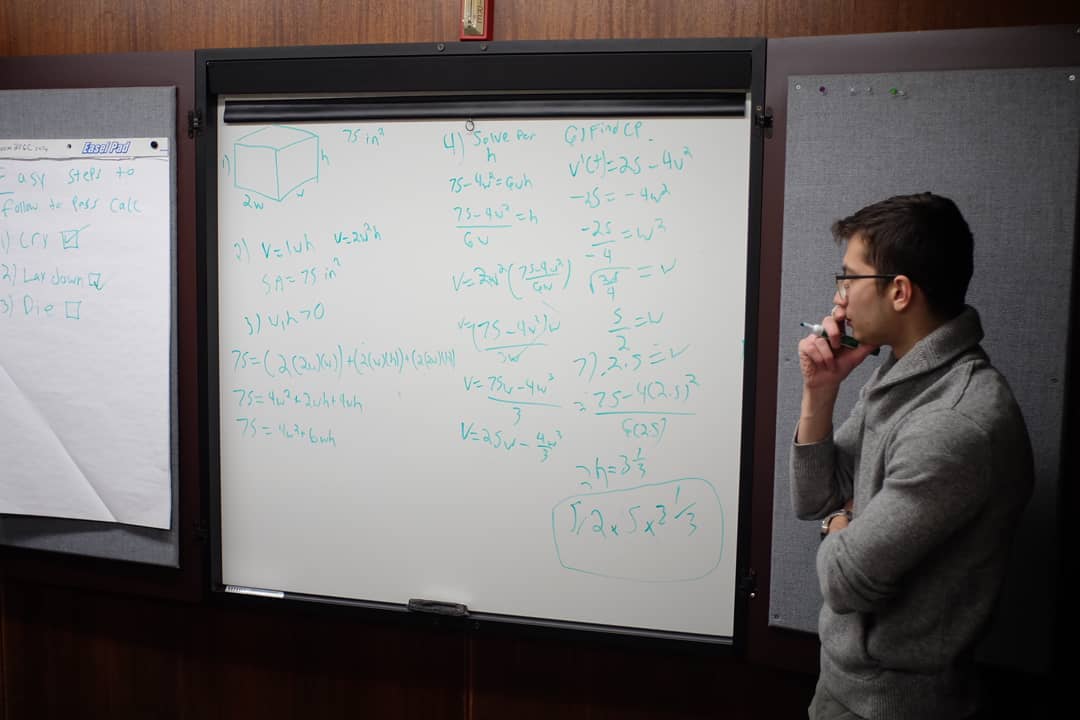 Easel Pad
Easy steps to
follow to Pass Calc
1) Cry ☑
2) Lay down ☑
3) Die ☐
75 in²
h
2w
w
2) V=lwh V=2w²h
SA=75 in²
3) w,h>0
75=(2(2w)(w))+(2(w)(h))+(2(2w)(h))
75=4w²+2wh+4wh
75=4w²+6wh
4) Solve for
h
75-4w²=6wh
75-4w²/6w=h
V=2w²(75-4w²/6w)
V=(75-4w²)w/3
V=75w-4w³/3
V=25w-4w³/3
6) Find CP.
V'(t)=25-4w²
-25=-4w²
-25/-4=w²
√25/4=w
5/2=w
7) 2.5=w
=75-4(2.5)²/6(2.5)
h=3 1/3
5/2 x 5 x 3 1/3